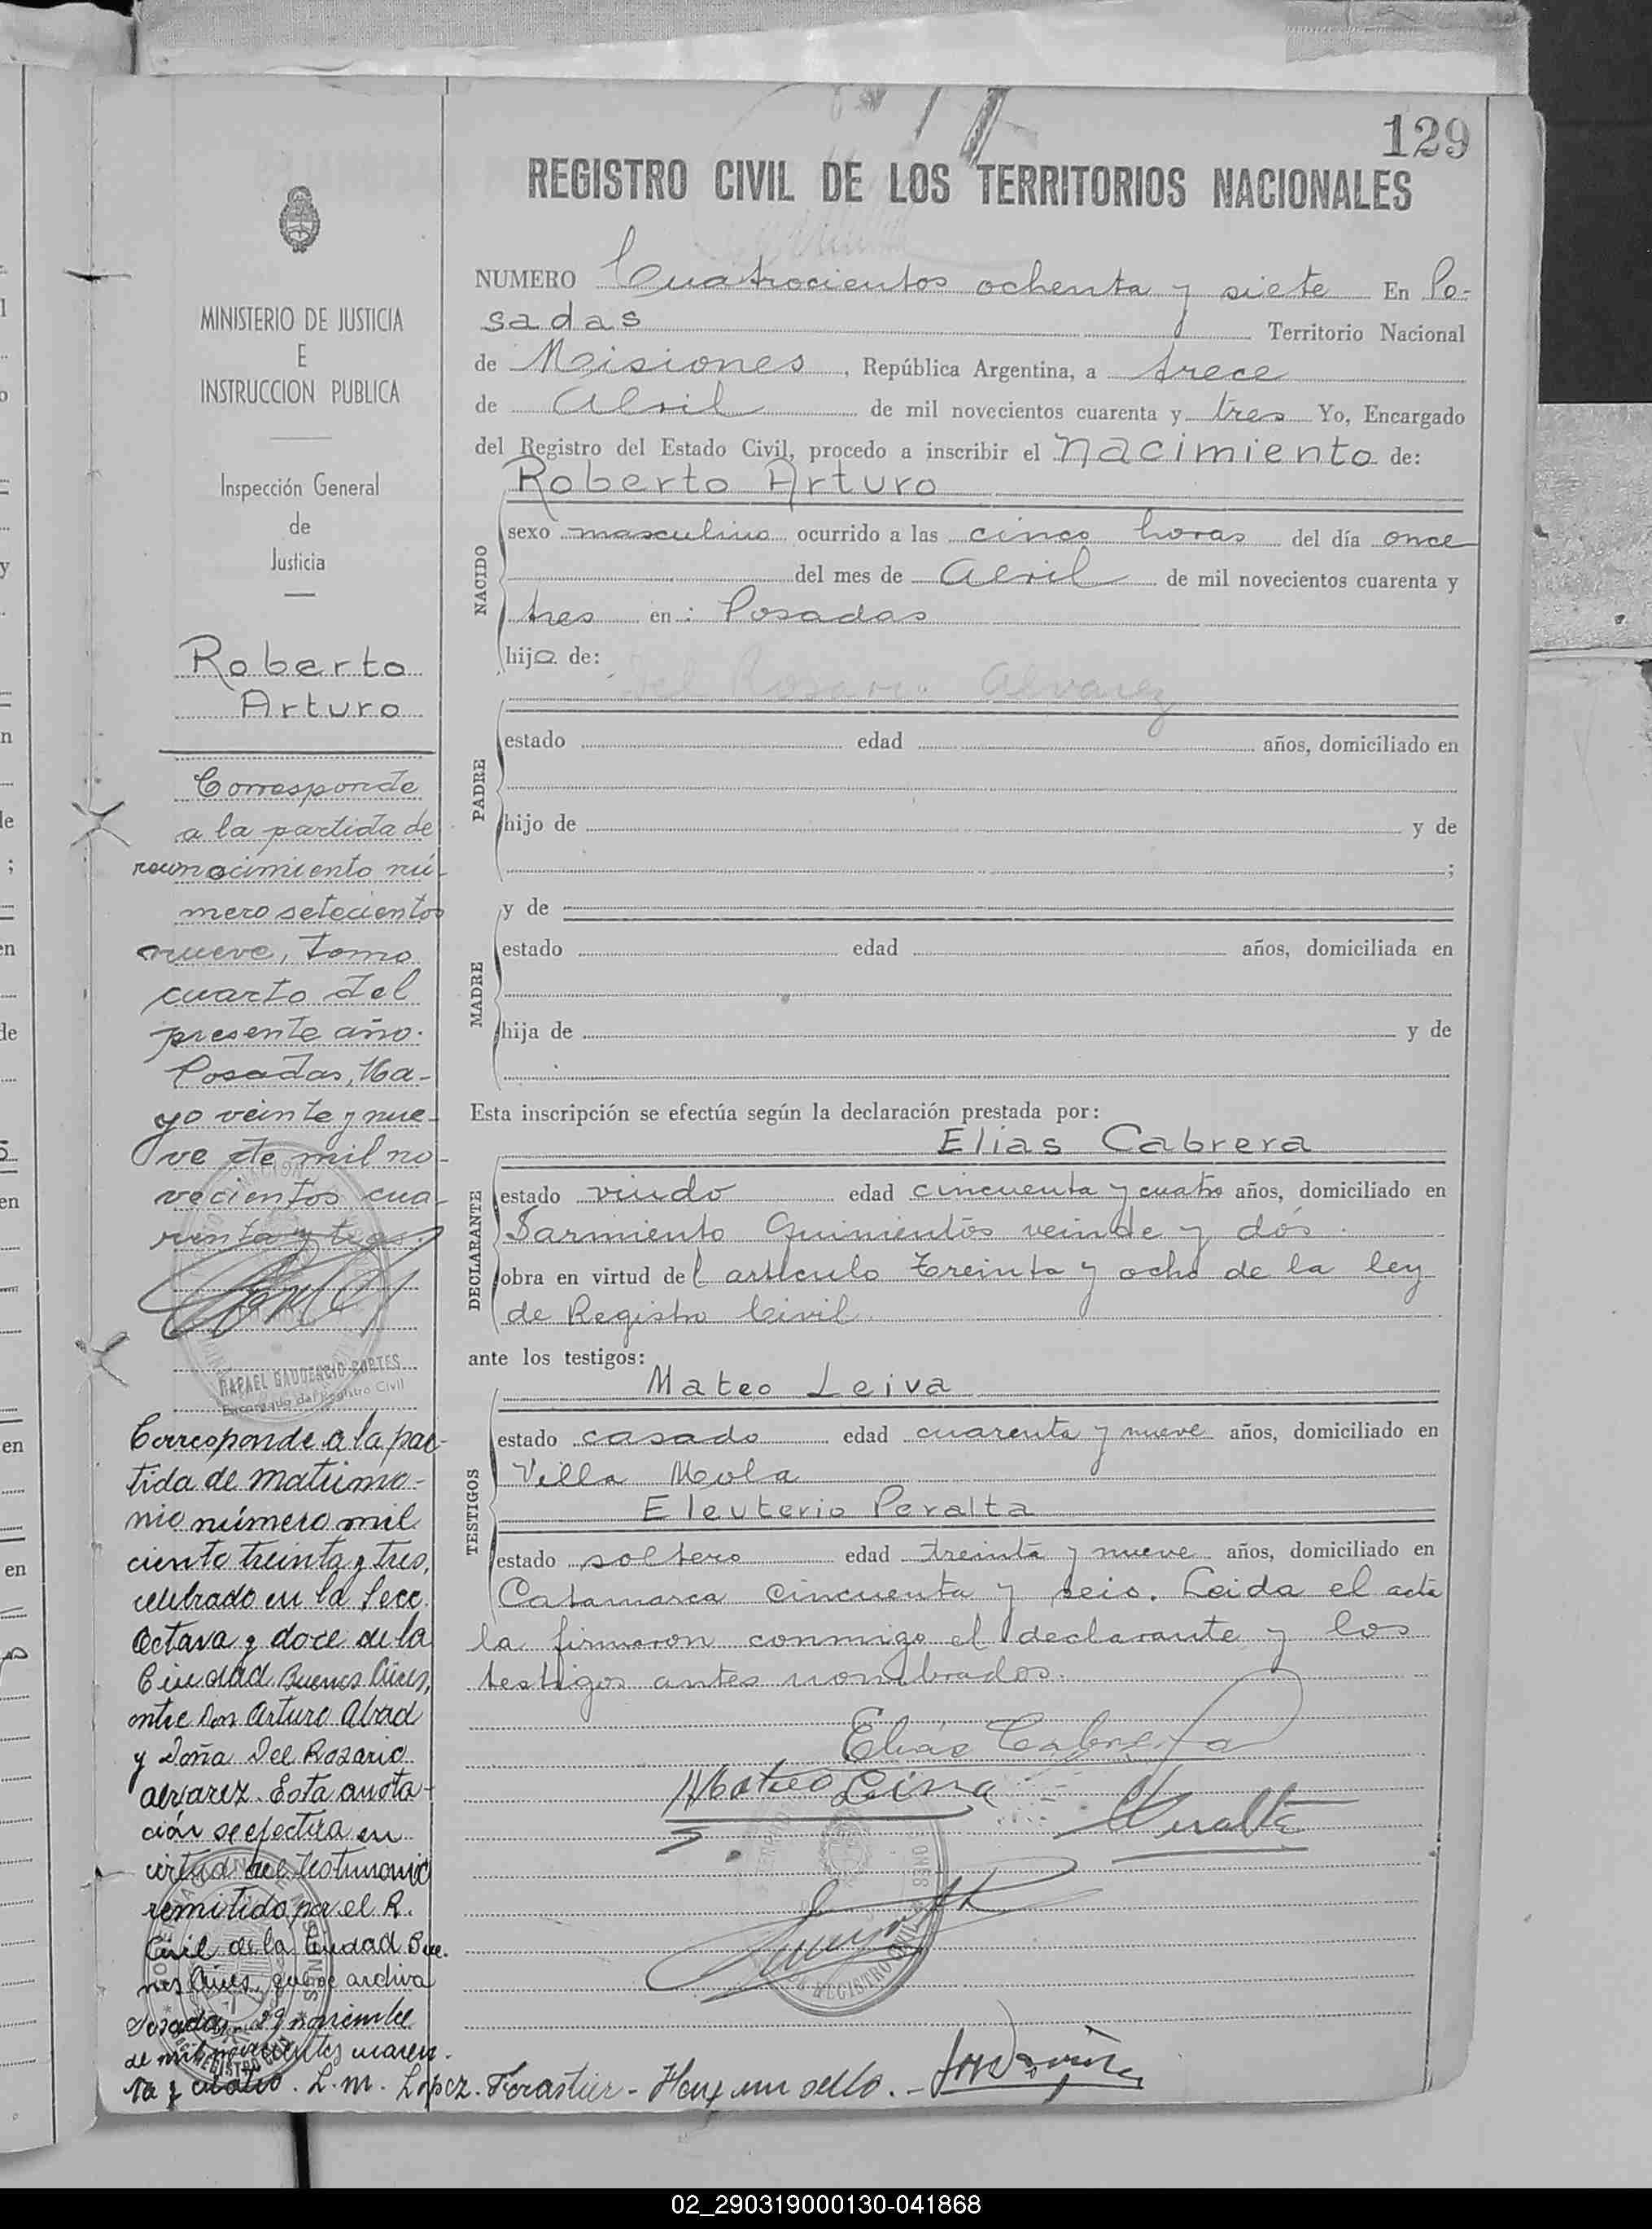 129
REGISTRO CIVIL DE LOS TERRITORIOS NACIONALES
NUMERO Cuatrocientos ochenta y siete En Po-
sadas Territorio Nacional
de Misiones, República Argentina, a trece
de Abril de mil novecientos cuarenta y tres Yo, Encargado
del Registro del Estado Civil, procedo a inscribir el nacimiento de:
Roberto Arturo
NACIDO
sexo masculino ocurrido a las cinco horas del día once
del mes de Abril de mil novecientos cuarenta y
tres en: Posadas
hijo de:
Del Rosario Alvarez
PADRE
estado edad años, domiciliado en
hijo de y de
;
y de
MADRE
estado edad años, domiciliada en
hija de y de
Esta inscripción se efectúa según la declaración prestada por:
Elias Cabrera
DECLARANTE
estado viudo edad cincuenta y cuatro años, domiciliado en
Sarmiento Quinientos veinte y dós.
obra en virtud del articulo treinta y ocho de la ley
de Registro Civil
ante los testigos:
Mateo Leiva
TESTIGOS
estado casado edad cuarenta y nueve años, domiciliado en
Villa Mola
Eleuterio Peralta
estado soltero edad treinta y nueve años, domiciliado en
Catamarca cincuenta y seis. Leida el acta
la firmaron conmigo el declarante y los
testigos antes nombrados.
Elias Cabrera
Mateo Leiva
Peralta
MINISTERIO DE JUSTICIA
E
INSTRUCCION PUBLICA
Inspección General
de
Justicia
Roberto
Arturo
Corresponde
a la partida de
reconocimiento nú-
mero setecientos
nueve, tomo
cuarto del
presente año.
Posadas, Ma-
yo veinte y nue-
ve de mil no-
vecientos cua-
renta y tres.
RAFAEL GAUDENCIO CORTES
Encargado del Registro Civil
Corresponde a la par-
tida de matrimo-
nio número mil
ciento treinta y tres,
celebrado en la Secc.
Octava y doce de la
Ciudad Buenos Aires,
entre Don Arturo Abad
y Doña Del Rosario
Alvarez. Esta anota-
ción se efectúa en
virtud del testimonio
remitido por el R.
Civil de la Ciudad Bue-
nos Aires, que se archiva
Posadas 29 noviembre
de mil novecientos cuaren-
ta y cuatro. L. M. López Forastier - Hay un sello. -
02_290319000130-041868